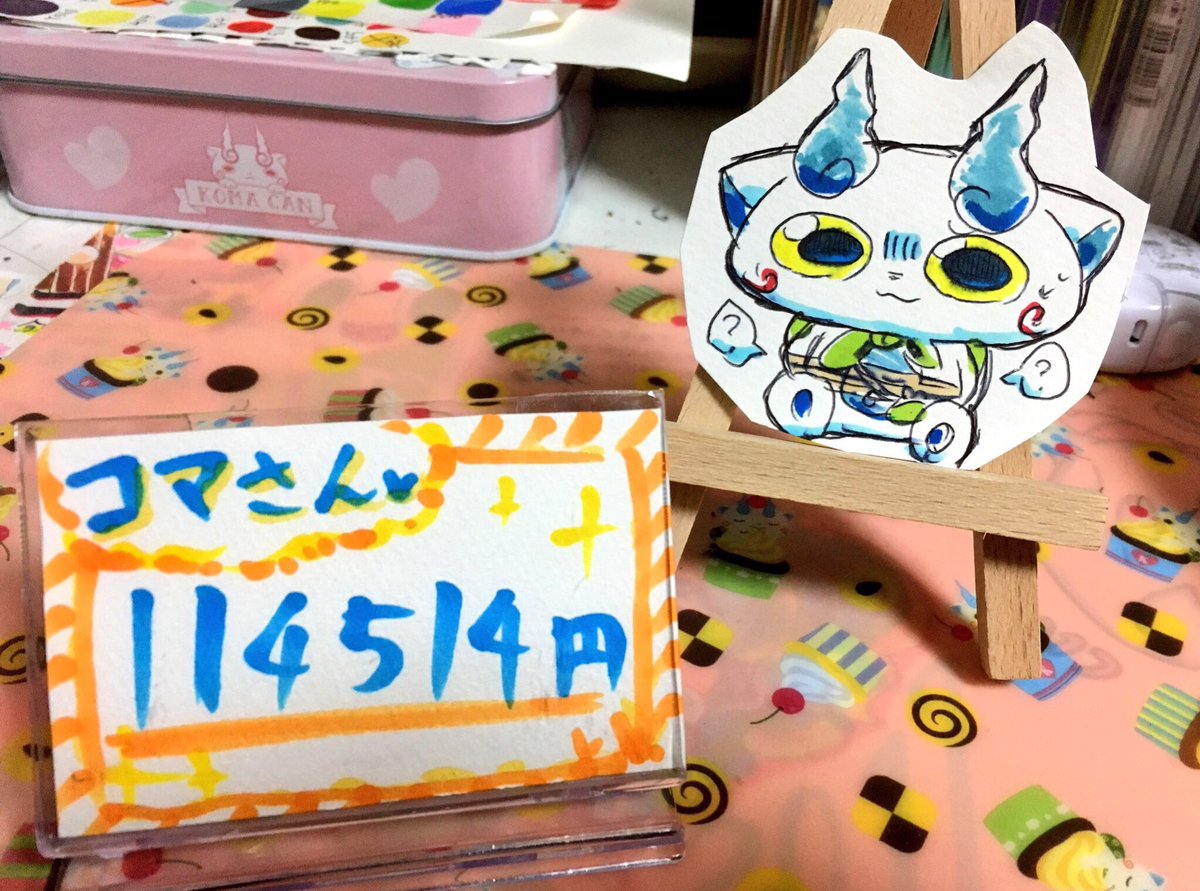 KOMA CAN
?
?
コマさん♥
114514円